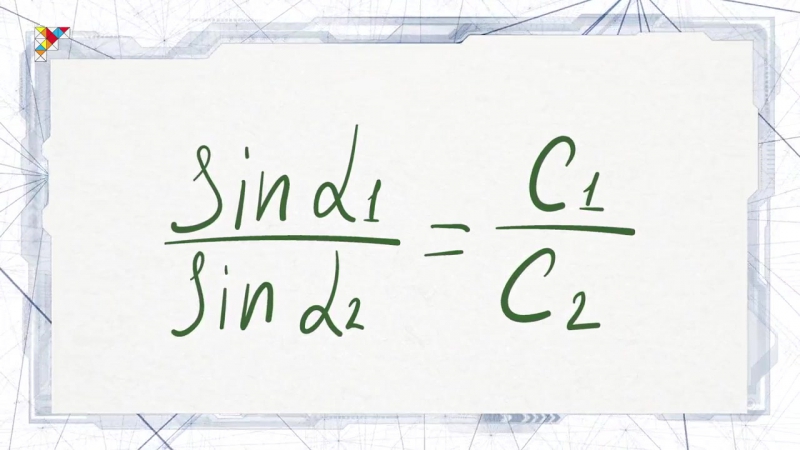 sin α1 / sin α2 = C1 / C2